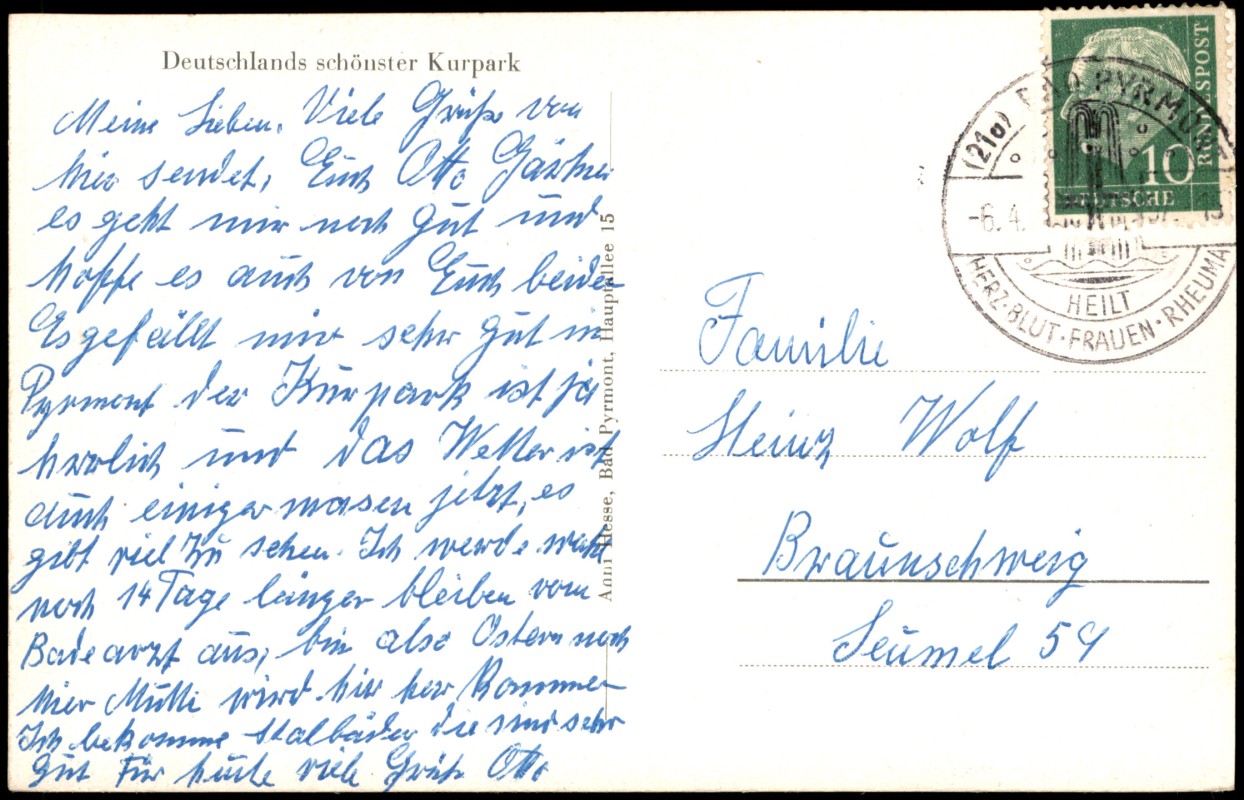 Deutschlands schönster Kurpark
Meine Lieben. Viele Grüße von
hier sendet, Euch Otto Gärtner
es geht mir noch gut und
hoffe es auch von Euch beiden
Es gefällt mir sehr gut in
Pyrmont der Kurpark ist ja
herrlich und das Wetter ist
auch einigermasen jetzt, es
gibt viel zu sehen. Ich werde wohl
noch 14 Tage länger bleiben vom
Badearzt aus, bin also Ostern noch
hier Mutti wird hier her kommen
Ich bekomme Stalbäder die sind sehr
gut Für heute viele Grüße Otto
Anni Hesse, Bad Pyrmont, Hauptallee 15
DEUTSCHE BUNDESPOST
10
(21a) BAD PYRMONT
-6.4.
HEILT
HERZ·BLUT·FRAUEN·RHEUMA
Familie
Heinz Wolf
Braunschweig
Seumel 54